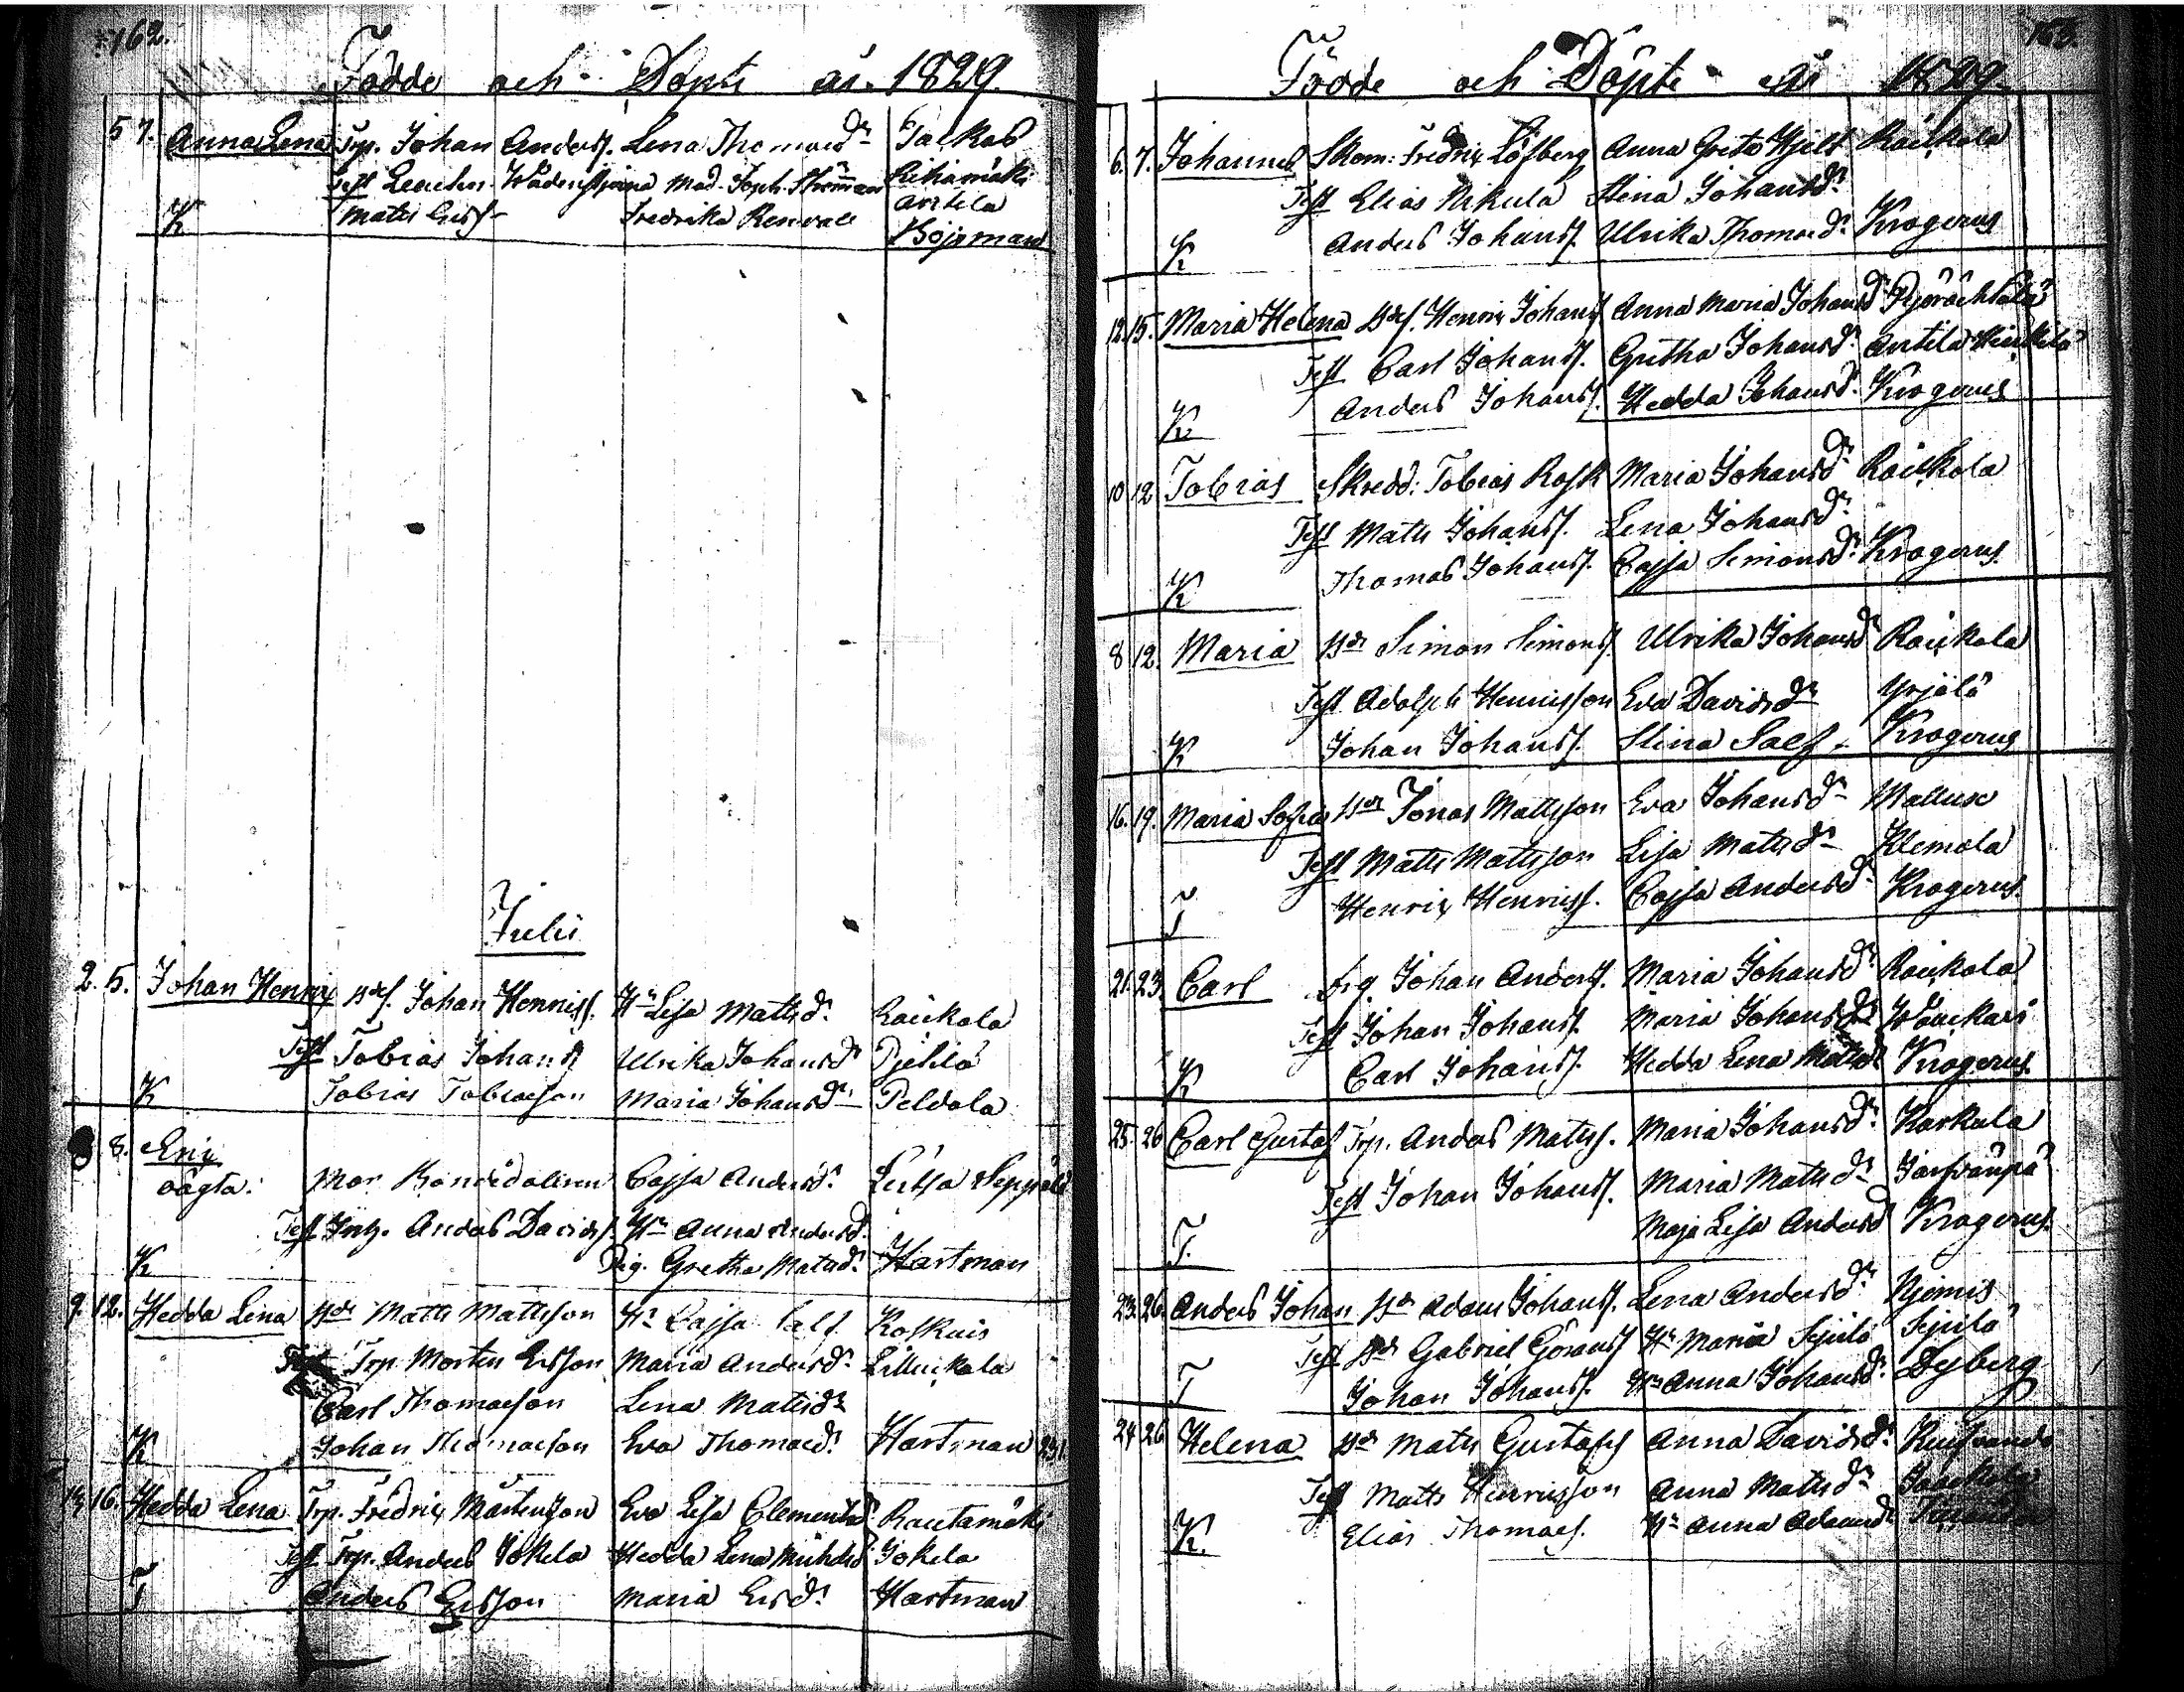 162.
Födde och Döpte år 1829.
5 7. Anna Lena Trp. Johan Anderss. Lena Thomasdr Jackas
Test Mad. Soph. Riihimäki
Matts Erss. Fredrika Renvall Anttila
K Bojsman
Julii
2. 5. Johan Henrix Bds. Johan Henriss. Hu Lisa Mattsdr Raiskola
Test Tobias Johanss. Ulrika Johansdr Pjetilä
K Tobias Tobiasson Maria Johansdr Peldola
8. Erix Cajsa Andersdr Seppälä
oägta.
Test Anders Davidss. Hu Anna Andersdr
K Pig. Gretha Matsdr Hartman
9. 12. Hedda Lena Bdr Matts Mattsson Hu Cajsa Koskuis
Test Trp. Morten Ersson Maria Andersdr
Carl Thomasson Lena Matsdr
K Johan Thomasson Eva Thomasdr Hartman
14. 16. Hedda Lena Trp. Fredrix Mårtensson Eva Lisa Clementsdr Rautamäki
Test Trp. Anders Jokela Hedda Lena Jokela
T Anders Ersson Maria Ersdr Hartman
163.
Födde och Döpte år 1829.
6. 7. Johannes Skom: Fredrix Löfberg Anna Greta Hjelt Raiskola
Test Elias Nikula Stina Johansdr
K Anders Johanss. Ulrika Thomasdr Krogerus
12. 15. Maria Helena Bds. Henrix Johanss. Anna Maria Johansdr
Test Carl Johanss. Gretha Johansdr Antila Heikilä
K Anders Johanss. Hedda Johansdr Krogerus
10 12 Tobias Skredd: Tobias Rosk Maria Johansdr Raiskola
Test Matts Johanss. Lena Johansdr
K Thomas Johanss. Cajsa Simonsdr Krogerus.
8 12. Maria Bdr Simon Simonss. Ulrika Johansdr Raiskola
Test Adolph Henrisson Eva Davidsdr Yrjälä
K Johan Johanss. Stina Salf Krogerus
16. 19. Maria Sofia Bdr Jonas Mattsson Eva Johansdr Mallus
Test Matts Mattsson Lisa Matsdr Klemola
T Henrix Henriss. Cajsa Andersdr Krogerus.
21. 23. Carl Johan Anderss. Maria Johansdr Raiskola
Test Johan Johanss. Maria Johansdr
K Carl Johanss. Hedda Lena Matsdr Krogerus.
25. 26 Carl Gustaf Trp. Anders Matss. Maria Johansdr Karkula
Test Johan Johanss. Maria Matsdr
T. Maja Lisa Andersdr Krogerus.
23. 26. Anders Johan Bdr Adam Johanss. Lena Andersdr Njemis
Test Bdr Gabriel Göranss. Hu Maria
T Johan Johanss. Hu Anna Johansdr Dyberg
24 26 Helena Bdr Matts Gustafss. Anna Davidsdr
Test Matts Henrisson Anna Matsdr
K. Elias Thomass. Hu Anna Adamsdr